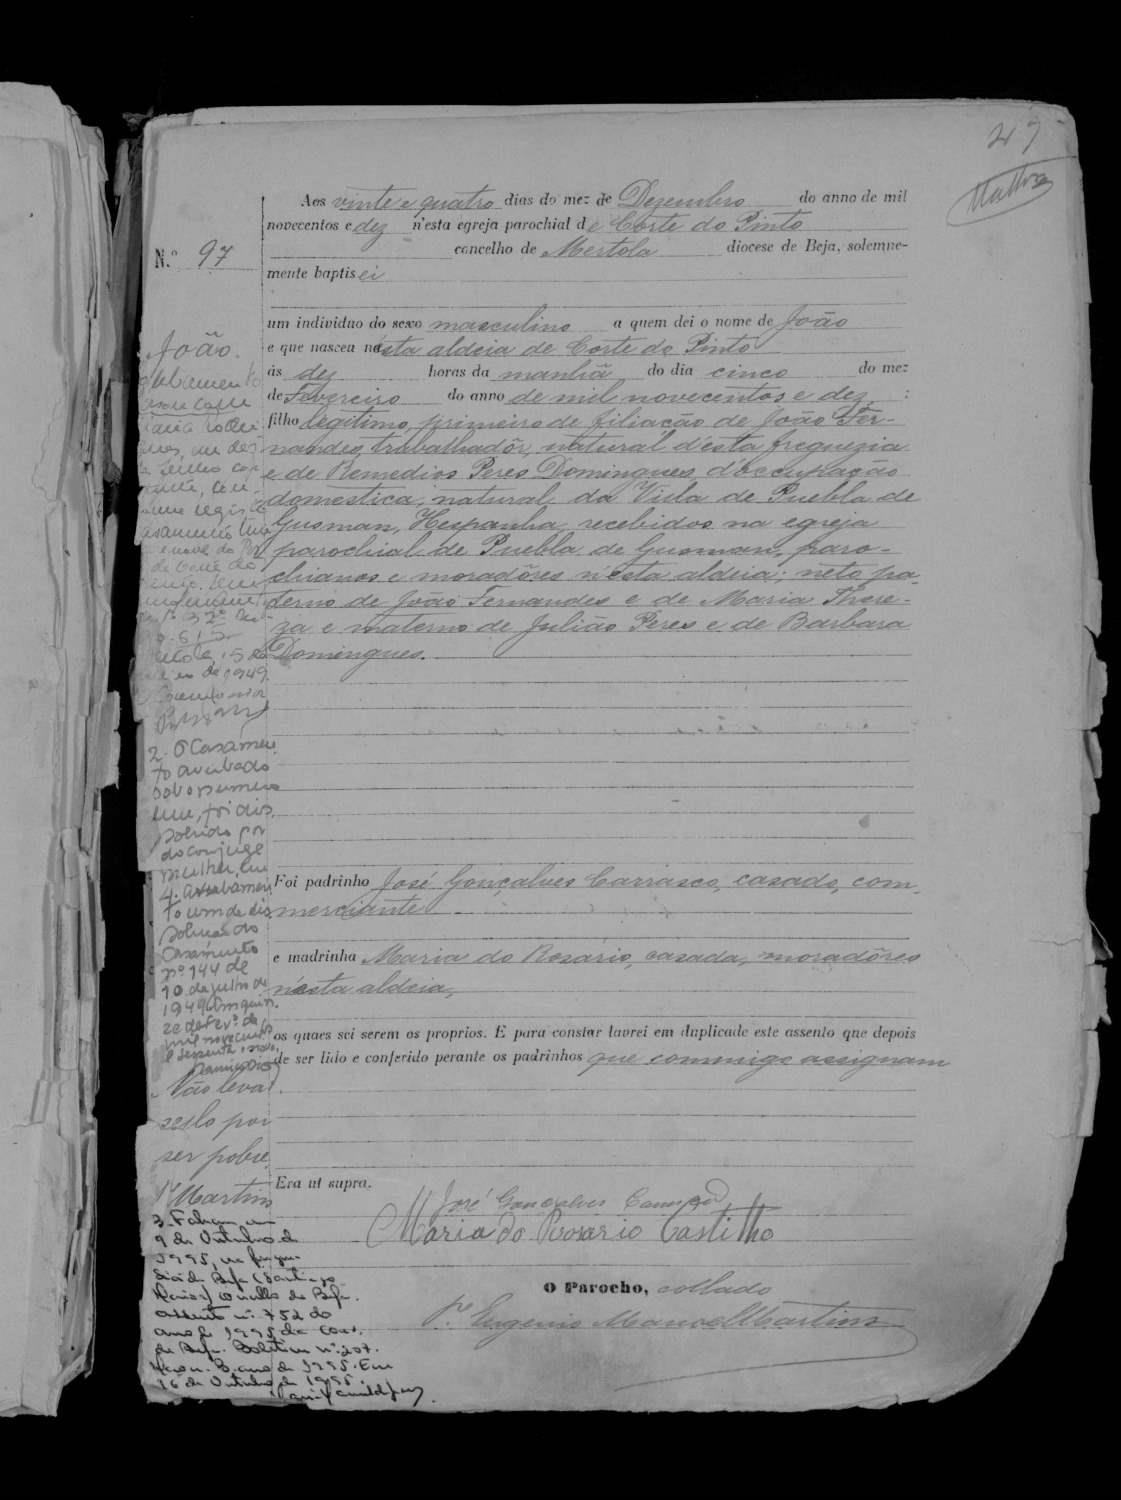 27
Aos vinte e quatro dias do mez de Dezembro do anno de mil
novecentos e dez n'esta egreja parochial de Corte do Pinto
concelho de Mertola diocese de Beja, solemne-
mente baptisei
um individuo do sexo masculino a quem dei o nome de João
e que nasceu nesta aldeia de Corte do Pinto
ás dez horas da manhã do dia cinco do mez
de Fevereiro do anno de mil novecentos e dez :
filho legitimo, primeiro de filiação de João Fer-
nandes, trabalhadôr, natural d'esta freguezia
e de Remedios Peres Domingues, d'occupação
domestica, natural da Villa de Puebla de
Gusman, Hespanha, recebidos na egreja
parochial de Puebla de Gusman, paro-
chianos e moradôres n'esta aldeia; neto pa-
terno de João Fernandes e de Maria There-
za e materno de Julião Peres e de Barbara
Domingues.
Foi padrinho José Gonçalves Carrasco, casado, com-
merciante
e madrinha Maria do Rosário, casada, moradôres
n'esta aldeia,
os quaes sei serem os proprios. E para constar lavrei em duplicado este assento que depois
de ser lido e conferido perante os padrinhos que commigo assignam
Era ut supra.
José Gonçalves
Maria do Rosario Castilho
O Parocho, collado
P.e Eugenio Manoel Martins
N.º 97
João.
de 1949.
2. O Casamen
to averbado
sob o numero
um, foi dis
solvido por
do conjuge
mulher, em
4. Averbamen
to um de dis
solucao do
Casamento
nº 144 de
10 de julho de
1949
Não leva
sello por
ser pobre
P.e Martins
3. Faleceu em
9 de Outubro de
1995, na fregue-
sia de Beja (Santiago
Maior) concelho de Beja.
Assento n.º 752 do
ano de 1995 da Cons.
de Beja. Boletim nº 207.
Maço n. 3. ano de 1995. Em
16 de Outubro de 1995.